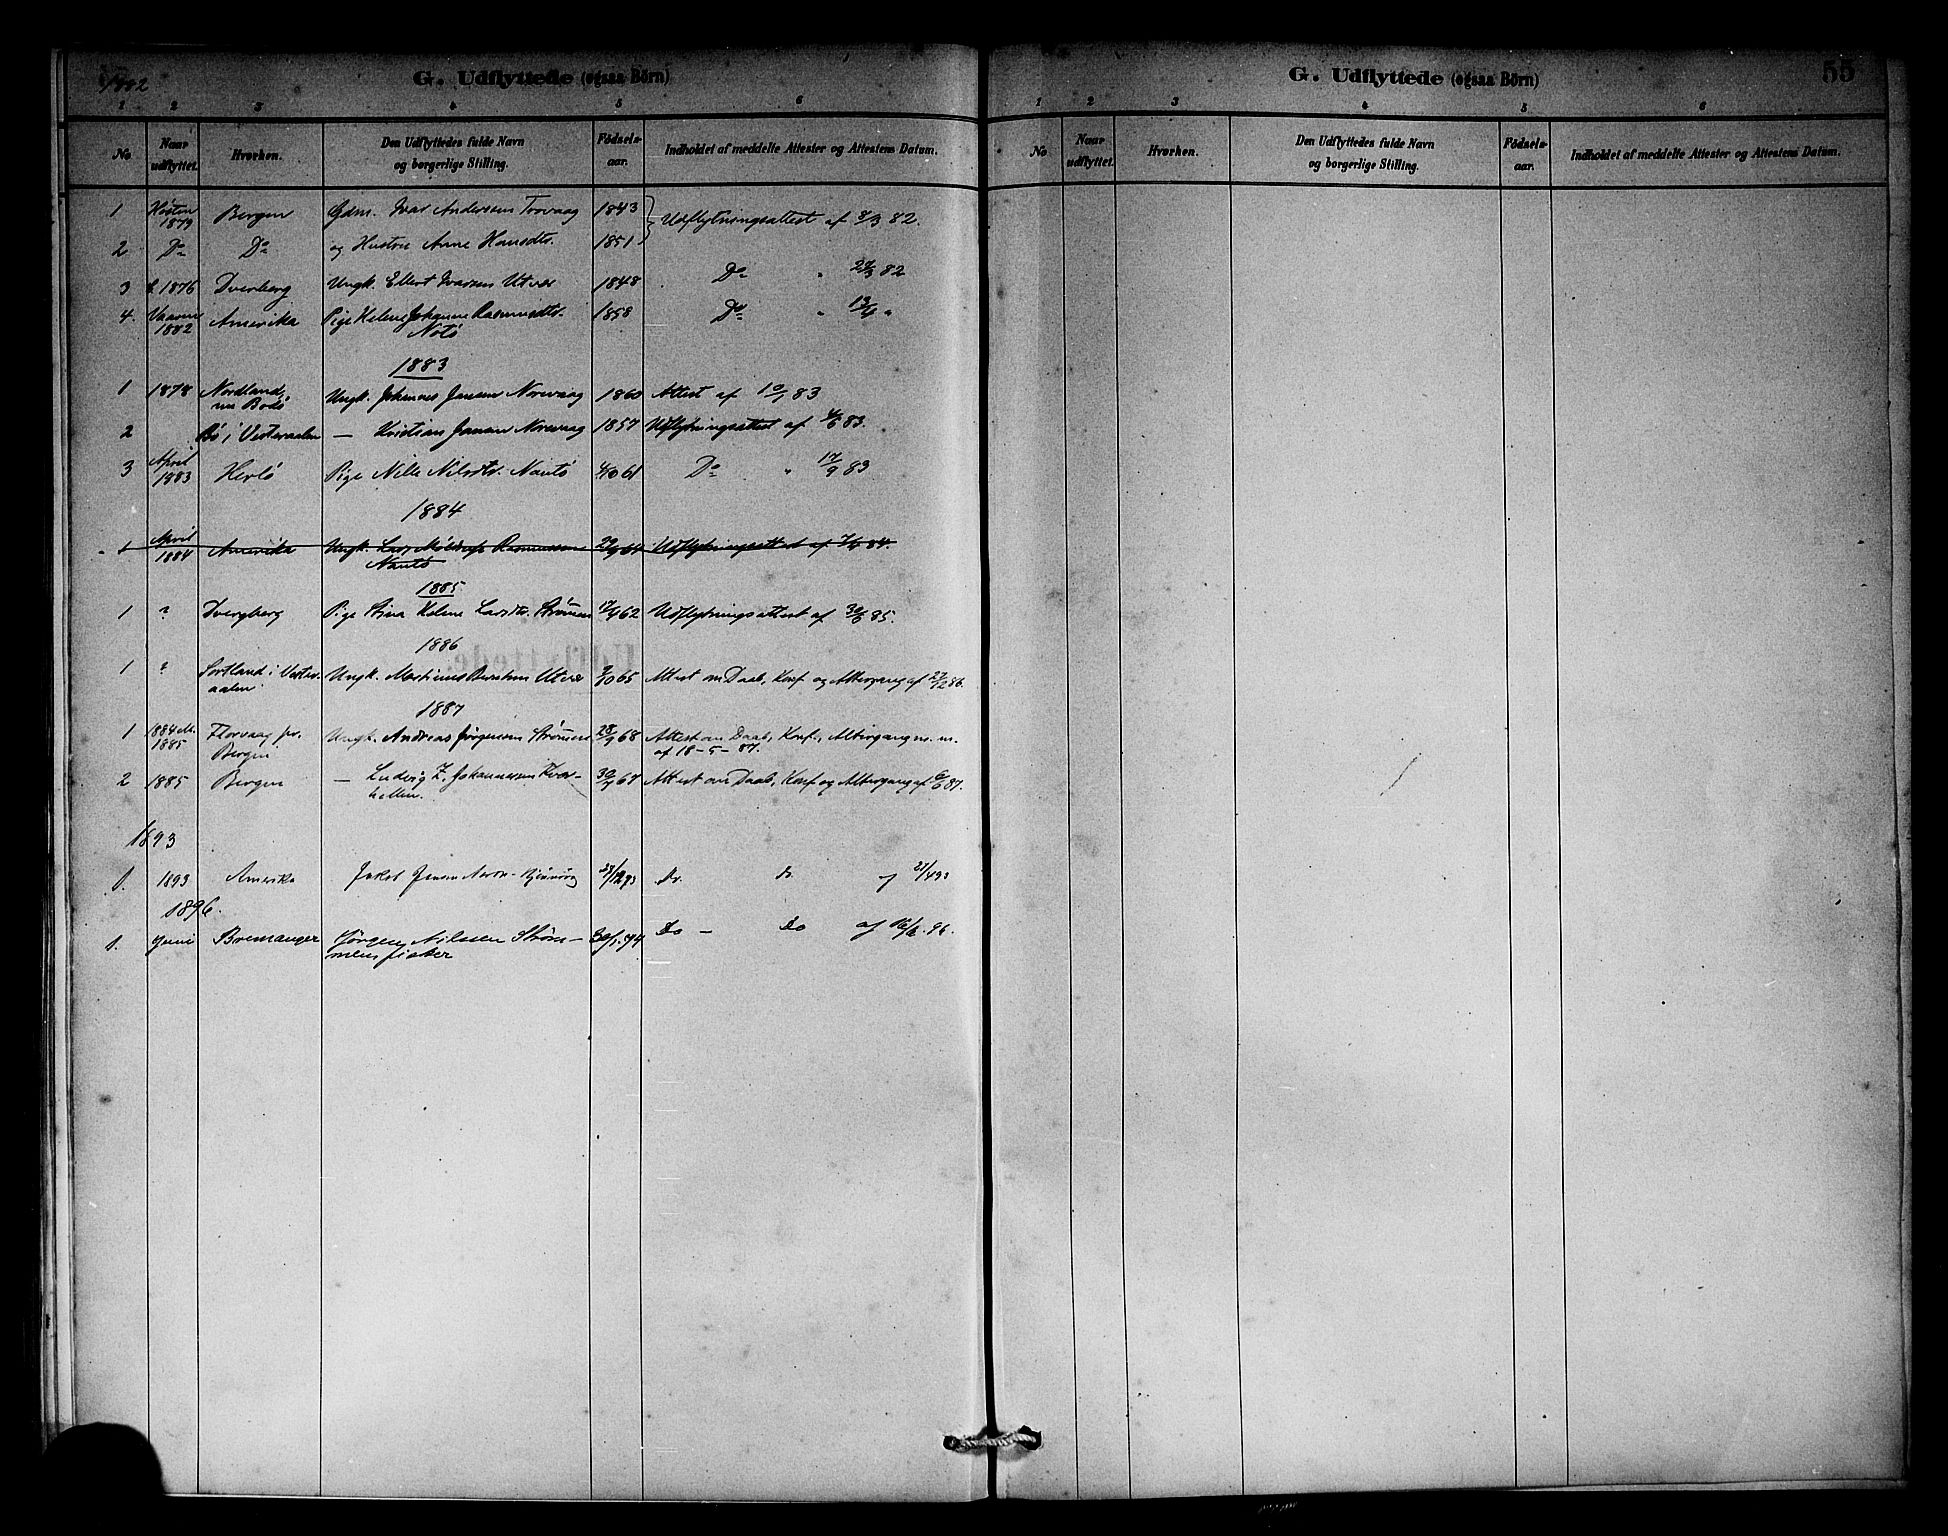 1882
G. Udflyttede (ogsaa Börn)
1 2 3 4 5 6
No Naar udflyttet. Hvorhen. Den Udflyttedes fulde Navn og borgerlige Stilling. Födsels-aar. Indholdet af meddelte Attester og Attestens Datum.
1 Hösten 1879 Bergen Gdm. Ivar Andersen Trovaag 1843 Udflytningsattest af 8/3 82.
2 Do Do og Hustru Anne Hansdtr. 1851
3 1876 Dverberg Ungk. Ellert Ivarsen Utvær 1848 Do " 29/3 82
4. Vaaren 1882 Amerika Pige Helene Johanne Rasmusdtr. 1858 Do " 13/6 "
Notö
1883
1 1878 Nordland, Ungk. Johannes Jensen Norevaag 1860 Attest af 10/1 83
Bodö
2 Bö i Vesteraalen — Kristian Jensen Norevaag 1857 Udflytningsattest af 4/6 83.
3 April 1883 Herlö Pige Nille Nilsdtr. Nautö 4/10 61 Do " 17/9 83
1884
1 April 1884 Amerika Ungk. Lars Rasmussen 64 Udflytningsatt. af 7/4 84.
Nautö
1885
1 ? Dvergberg Pige Stina Helene Larsdtr. Strömen 62 Udflytningsattest af 30/6 85.
1886
1 ? Sortland i Vester- Ungk. Martinus Berntsen Utvær 9/10 65 Attest om Daab, Konf. og Altergang af 27/12 86.
aalen
1887
1 1884 1885 Florvaag pr. Ungk. Andreas Jörgensen Strömen 28/9 68 Attest om Daab, Konf., Altergang m. m.
Bergen af 18-5-87.
2 1885 Bergen — Ludvig Z. Johannesen Kvær- 67 Attest om Daab, Konf og Altergang af 6/6 87.
hellen.
1893
1. 1893 Amerika Jakob Jensen Do. do. af 93
1896.
1. Juni Bremanger Jörgen Nilssen Ström- 30/1. 74 Do — Do af 96.
mens fisker
G. Udflyttede (ogsaa Börn)
55
1 2 3 4 5 6
No Naar udflyttet. Hvorhen. Den Udflyttedes fulde Navn og borgerlige Stilling. Födsels-aar. Indholdet af meddelte Attester og Attestens Datum.